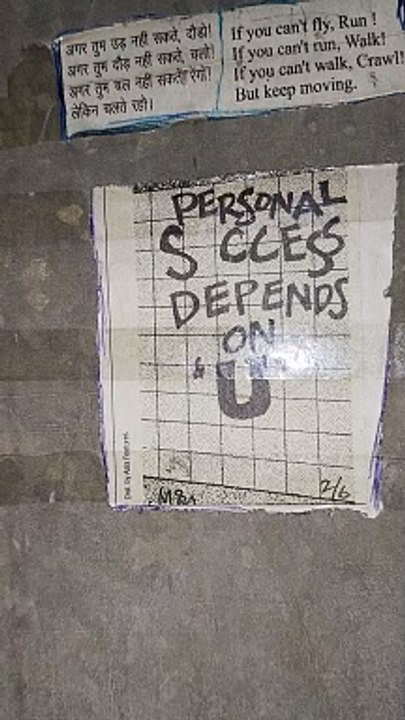 अगर तुम उड़ नहीं सकते, दौड़ो!
अगर तुम दौड़ नहीं सकते, चलो!
अगर तुम चल नहीं सकते, रेंगो!
लेकिन चलते रहो।
If you can't fly, Run !
If you can't run, Walk!
If you can't walk, Crawl!
But keep moving.
PERSONAL
S CCESS
DEPENDS
ON
"U"
2/6